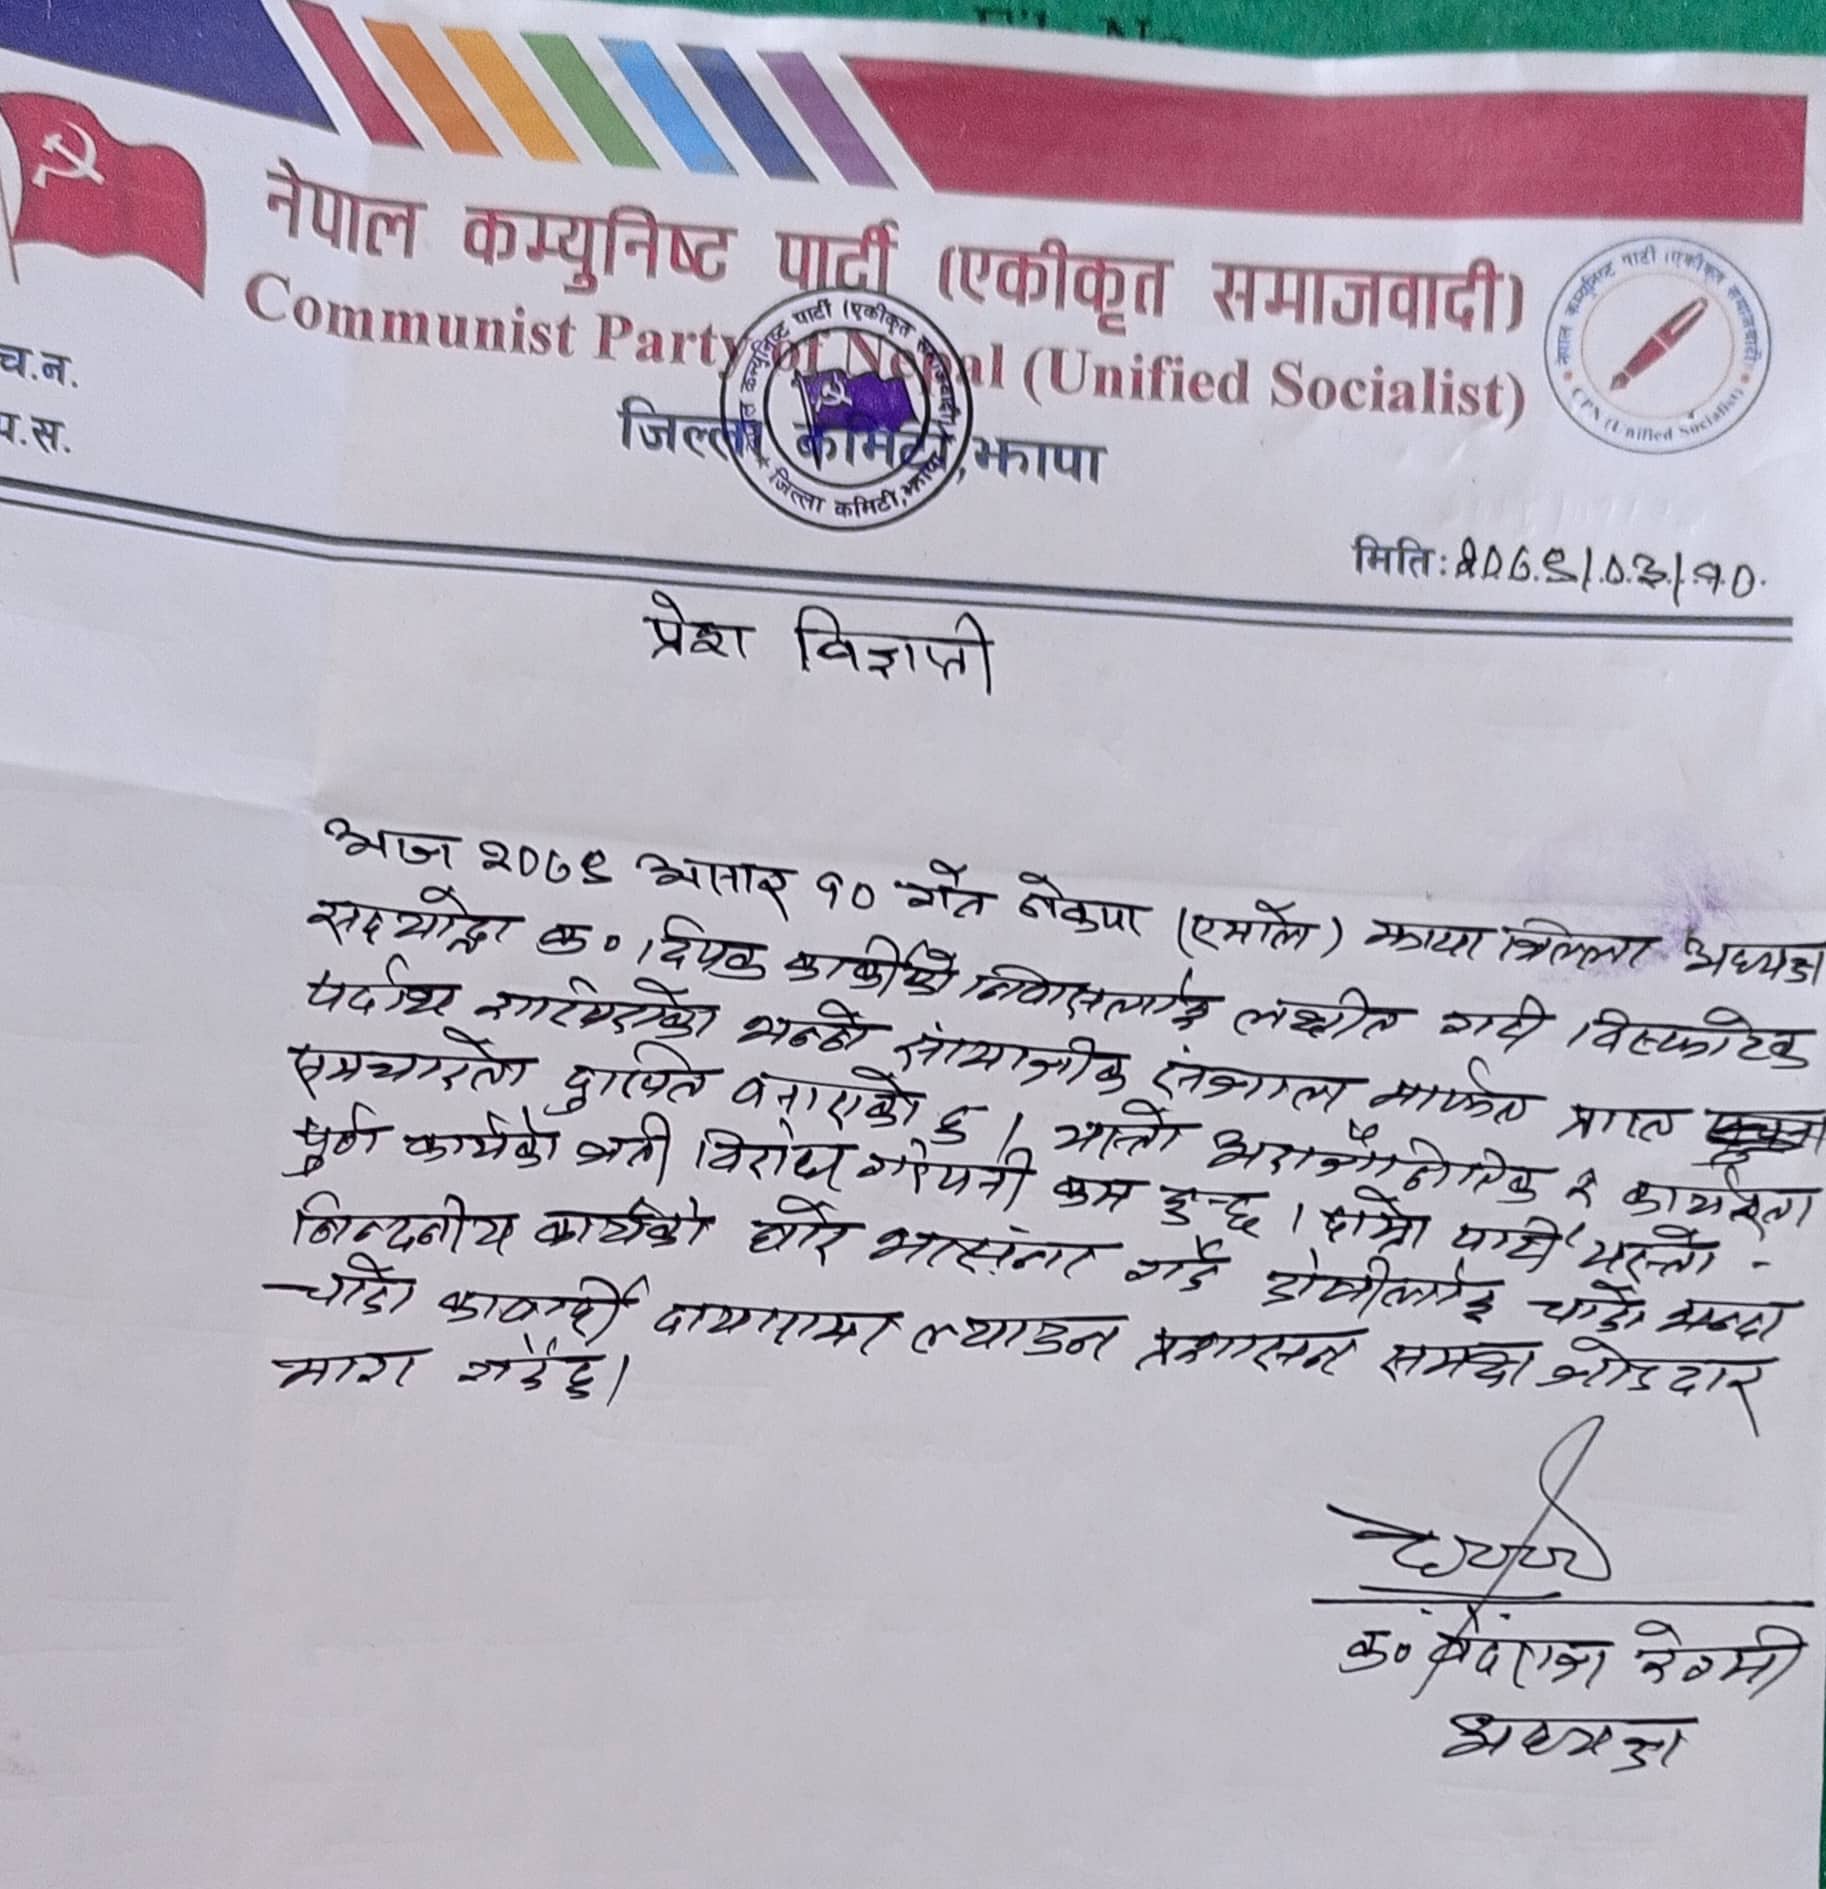 नेपाल कम्युनिष्ट पार्टी (एकीकृत समाजवादी)
Communist Party of Nepal (Unified Socialist)
जिल्ला कमिटी,झापा
नेपाल कम्युनिष्ट पार्टी (एकीकृत समाजवादी)
जिल्ला कमिटी,झापा
नेपाल कम्युनिष्ट पार्टी (एकीकृत समाजवादी)
CPN (Unified Socialist)
च.न.
प.स.
मिति: २०७९/०३/१०
प्रेश विज्ञप्ती
आज २०७९ असार १० गते नेकपा (एमाले) झापा जिल्ला अध्यक्ष
सहयोद्धा क० दिपक कार्कीको निवासलाई लक्षीत गरी विस्फोटक
पर्दाथ गराईएको भन्ने सामाजीक संजाल मार्फत प्राप्त
समचारले दुःखित बनाएको छ । यस्तो अराजनैतिक र कायरता
पुर्ण कार्यको जती विरोध गरेपनी कम हुन्छ । हाम्रो पार्टी यस्तो -
निन्दनीय कार्यको घोर भर्त्सना गर्दै दोषीलाई चाँडो भन्दा
चाँडो कार्वाही दायरामा ल्याउन प्रशासन समक्ष जोडदार
माग गर्दछ ।
क० रेग्मी
अध्यक्ष